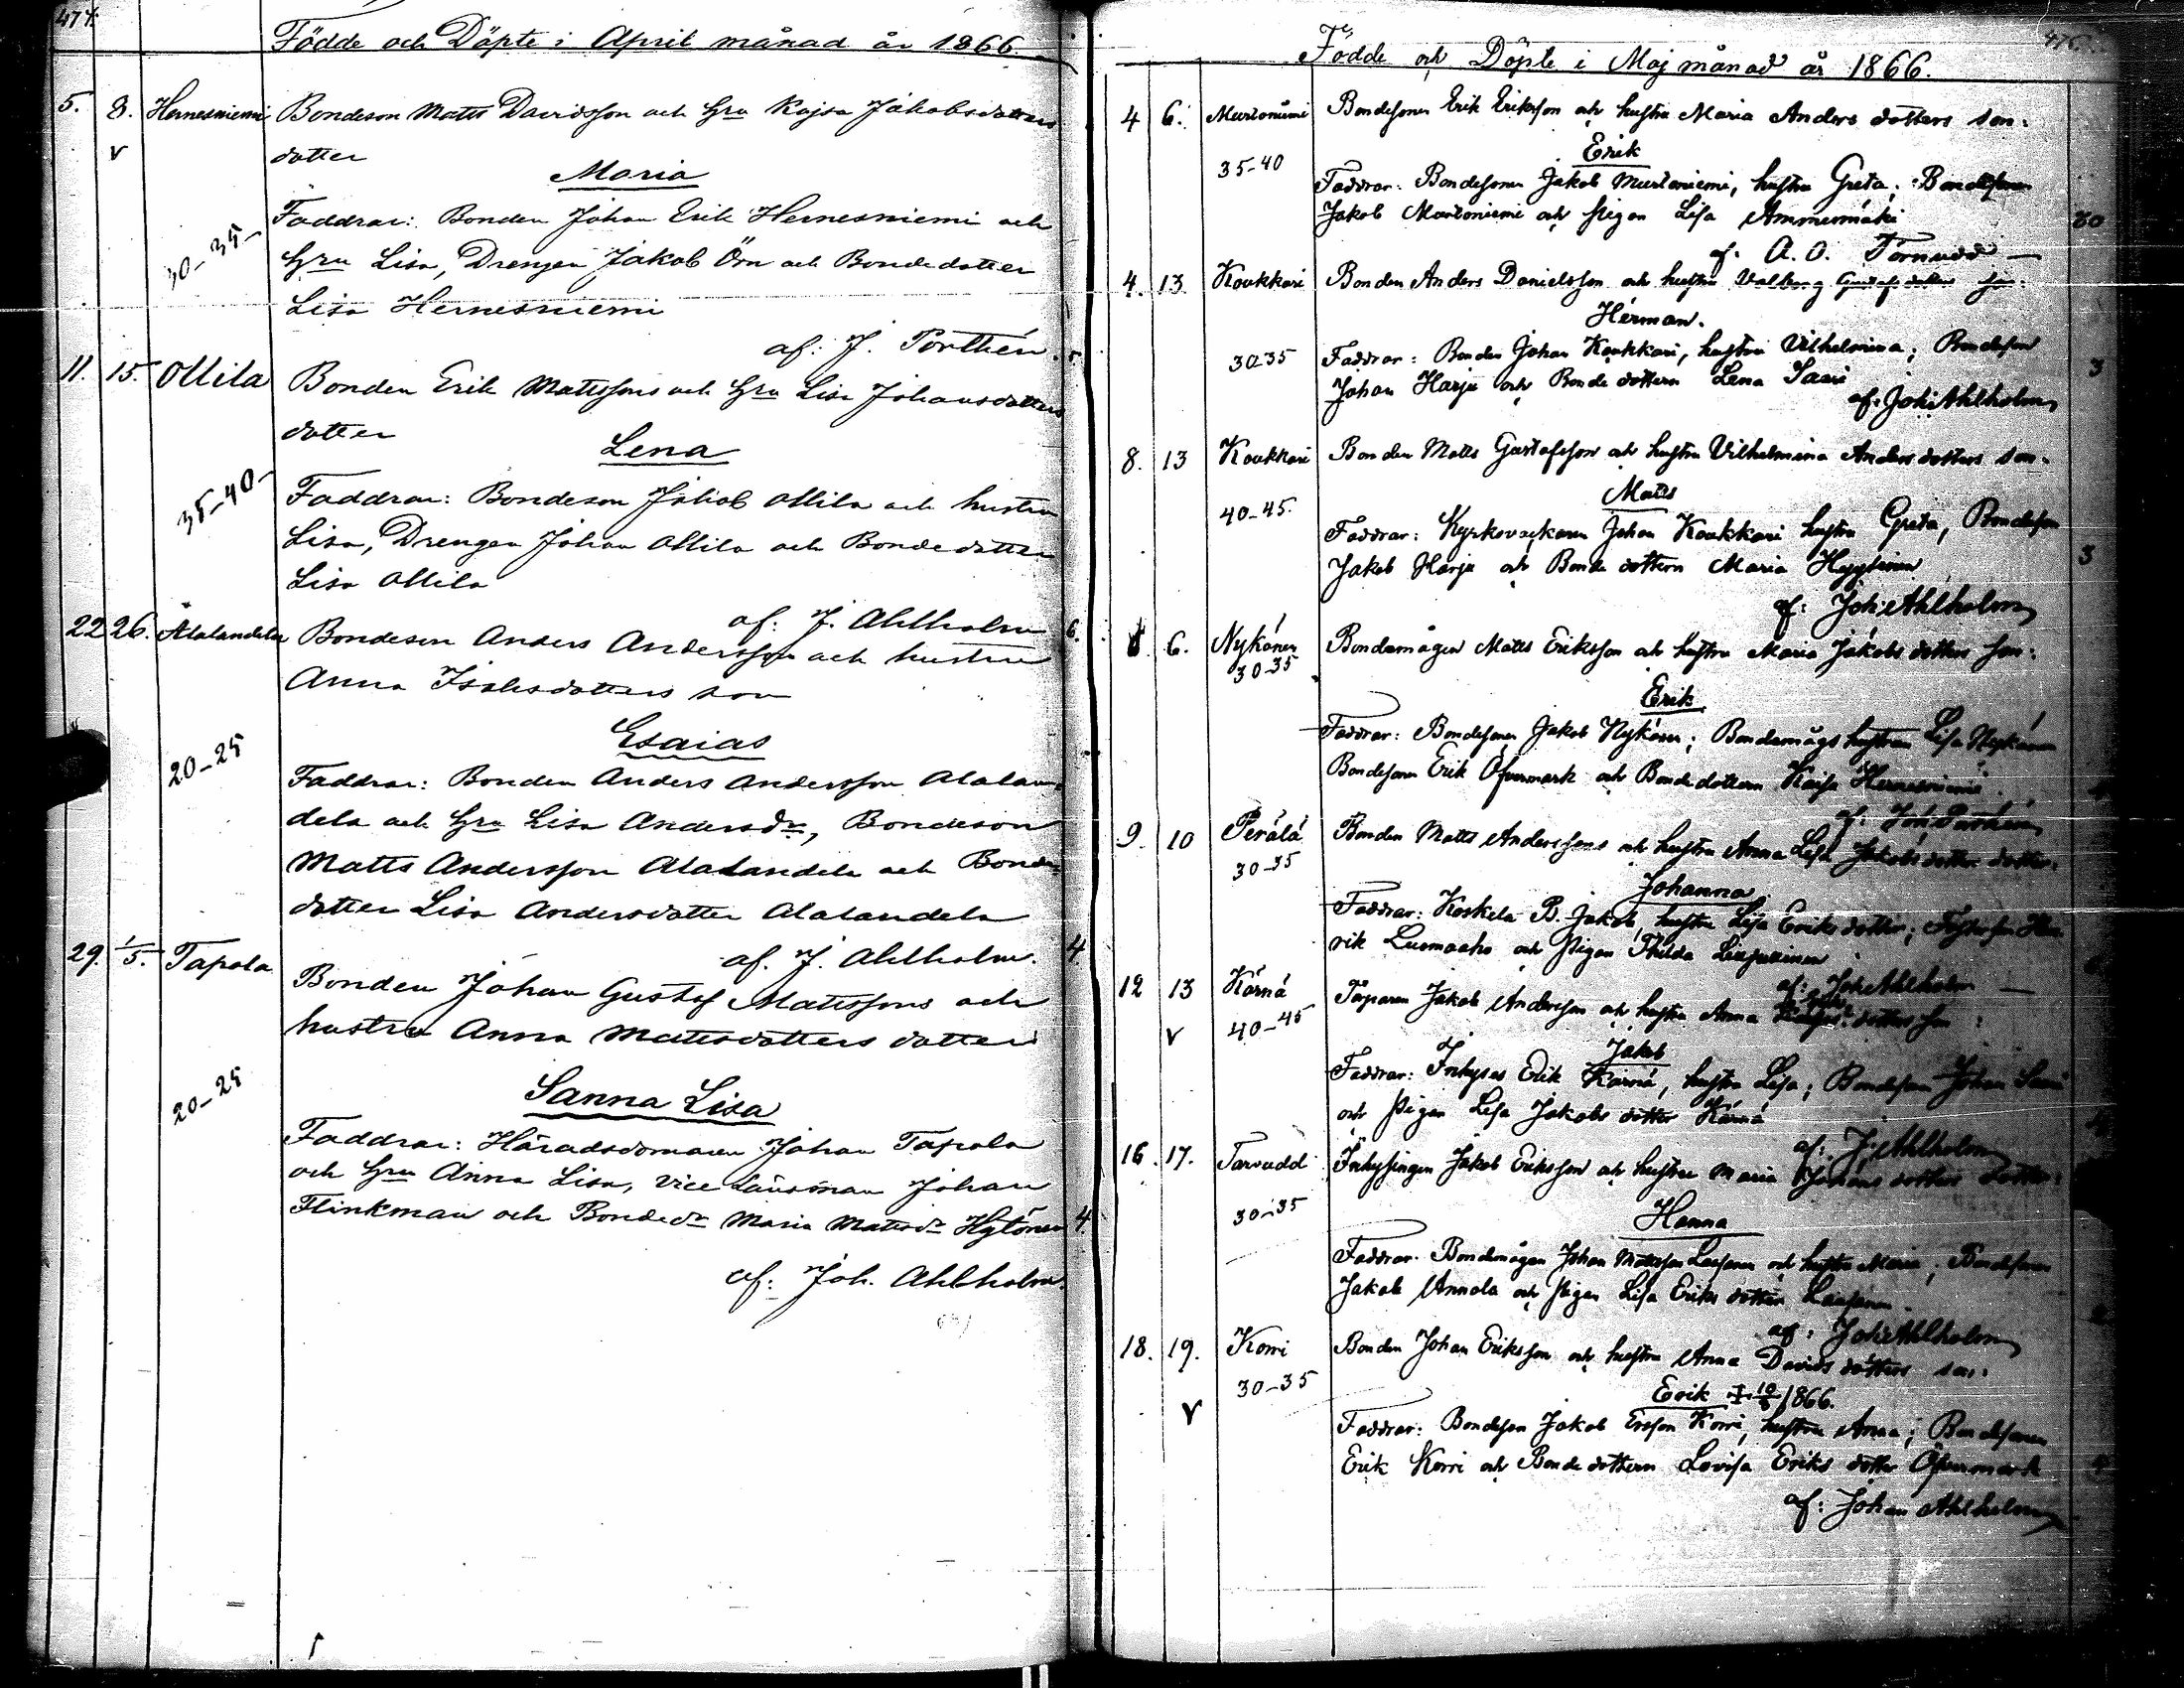 474.
Födde och Döpte i April månad år 1866
5. 8. Hernesniemi Bondeson Matts Davidsson och hru Kajsa Jakobsdotters
dotter
Maria
30-35- Faddrar: Bonden Johan Erik Hernesniemi och
hru Lisa, Drengen Jakob Örn och Bondedotter
Lisa Hernesniemi
af: J. Porthén. 5
11. 15. Ollila Bonden Erik Mattssons och hru Lisa Johansdotters
dotter
Lena
35-40- Faddrar: Bondeson Jakob Ollila och hustru
Lisa, Drengen Johan Ollila och Bondedotter
Lisa Ollila
af: J. Ahlholm 6.
22 26. Alalandela Bondeson Anders Andersson och hustru
Anna Isaksdotters son
Esaias
20-25 Faddrar: Bonden Anders Andersson Alalan-
dela och hru Lisa Andersdr, Bondeson
Matts Andersson Alalandela och Bonde-
dotter Lisa Andersdotter Alalandela
af. J. Ahlholm. 4
29. 1/5. Tapola Bonden Johan Gustaf Mattssons och
hustru Anna Mattsdotters dotter
Sanna Lisa
20-25 Faddrar: Häradsdomaren Johan Tapola
och hru Anna Lisa, vice Länsman Johan
Flinkman och Bondedr Maria Mattsdr Hytönen 4.
af: Joh. Ahlholm.
Födde och Döpte i Maj månad år 1866.
4 6. Murtoniemi Bondesonen Erik Eriksson och hustru Maria Anders dotters son.
Erik
35-40 Faddrar: Bondesonen Jakob Murtoniemi, hustru Greta; Bondesonen
Jakob Murtoniemi och pigan Lisa Ammesmäki
af. A. O. Törnudd
4. 13. Koukkari Bonden Anders Danielsson och hustru Valborg Gustafs dotters son.
Herman.
30-35 Faddrar: Bonden Johan Koukkari, hustru Vilhelmina; Bondeson 3
Johan Harju och Bonde dottern Lena Saari
af. Joh: Ahlholm
8. 13 Koukkari Bonden Matts Gustafsson och hustru Vilhelmina Anders dotters son.
Matts
40-45. Faddrar: Kyrkovackaren Johan Koukkari hustru Greta, Bondeson
Jakob Harju och Bonde dottern Maria 3
af: Joh: Ahlholm
6. Nykänen Bondemågen Matts Eriksson och hustru Maria Jakobs dotters son.
30-35
Erik
Faddrar: Bondesonen Jakob Nykänen; Bondemågs hustrun Lisa Nykänen
Bondesonen Erik Öfvermark och Bonde dottern Kajsa Hernesniemi.
af. Joh: Porthén
9. 10 Perälä Bonden Matts Anderssons och hustru Anna Lisa Jakobs dotters dotter.
30-35
Johanna
Faddrar: Koskela B. Jakob, hustru Lisa Eriks dotter;
rik Lusmaaho och Pigan Thilda
af: Joh Ahlholm
12 13 Kärnä Torparen Jakob Andersson och hustru Anna dotters son
40-45
Jakob
Faddrar: Inhyses Erik Kärnä, hustru Lisa; Bondeson Johan Saari
och Pigan Lisa Jakobs dotter Kärnä
af: J: Ahlholm
16. 17. Tarvudd Inhysingen Jakob Eriksson och hustru Maria Johans dotters dotter.
30-35
Hanna
Faddrar. Bondemågen Johan Mattsson och hustru Maria; Bondesonen
Jakob Annola och Pigan Lisa Eriks dotter
af: Joh: Ahlholm
18. 19. Korri Bonden Johan Eriksson och hustru Anna Davids dotters son.
30-35
Erik 1866.
Faddrar: Bondeson Jakob Ersson Korri, hustru Anna; Bondesonen
Erik Korri och Bonde dottern Lovisa Eriks dotter Öfvermark
af: Johan Ahlholm